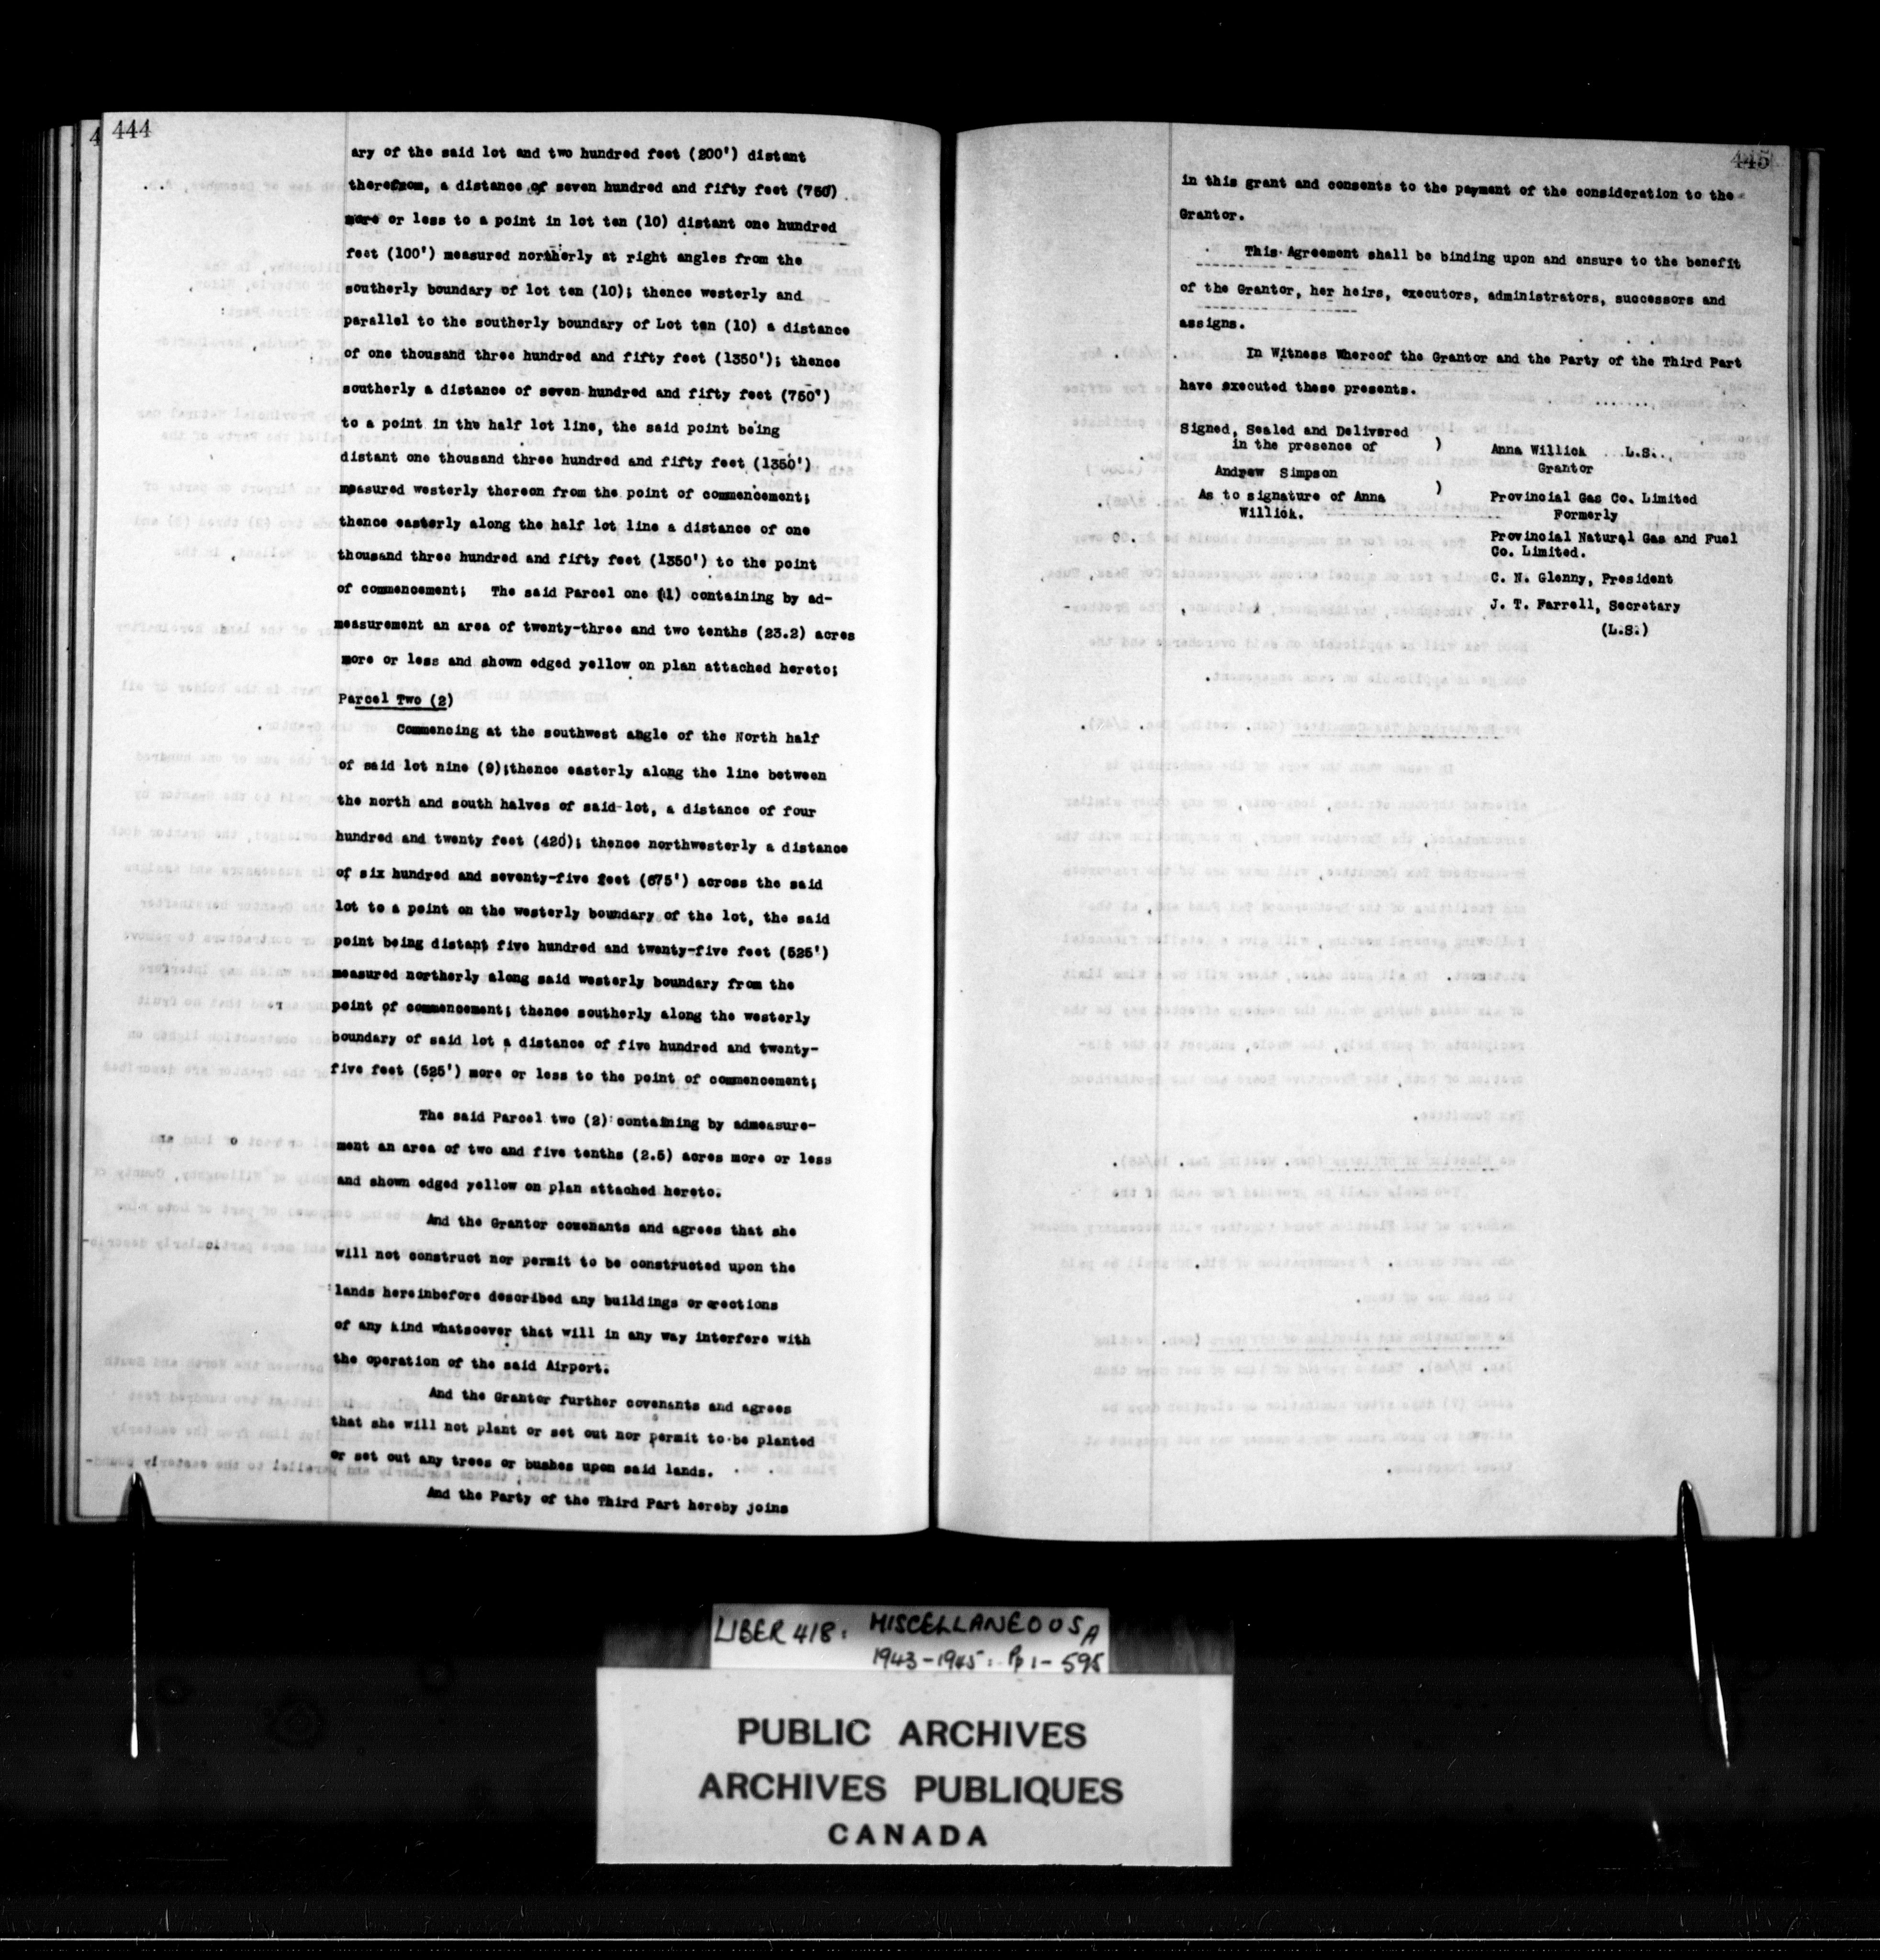 444
ary of the said lot and two hundred feet (200') distant
therefrom, a distance of seven hundred and fifty feet (750')
more or less to a point in lot ten (10) distant one hundred
feet (100') measured northerly at right angles from the
southerly boundary of lot ten (10); thence westerly and
parallel to the southerly boundary of Lot ten (10) a distance
of one thousand three hundred and fifty feet (1350'); thence
southerly a distance of seven hundred and fifty feet (750')
to a point in the half lot line, the said point being
distant one thousand three hundred and fifty feet (1350')
measured westerly thereon from the point of commencement;
thence easterly along the half lot line a distance of one
thousand three hundred and fifty feet (1350') to the point
of commencement; The said Parcel one (1) containing by ad-
measurement an area of twenty-three and two tenths (23.2) acres
more or less and shown edged yellow on plan attached hereto;
Parcel Two (2)
Commencing at the southwest angle of the North half
of said lot nine (9);thence easterly along the line between
the north and south halves of said lot, a distance of four
hundred and twenty feet (420'); thence northwesterly a distance
of six hundred and seventy-five feet (675') across the said
lot to a point on the westerly boundary of the lot, the said
point being distant five hundred and twenty-five feet (525')
measured northerly along said westerly boundary from the
point of commencement; thence southerly along the westerly
boundary of said lot a distance of five hundred and twenty-
five feet (525') more or less to the point of commencement;
The said Parcel two (2) containing by admeasure-
ment an area of two and five tenths (2.5) acres more or less
and shown edged yellow on plan attached hereto.
And the Grantor covenants and agrees that she
will not construct nor permit to be constructed upon the
lands hereinbefore described any buildings or erections
of any kind whatsoever that will in any way interfere with
the operation of the said Airport.
And the Grantor further covenants and agrees
that she will not plant or set out nor permit to be planted
or set out any trees or bushes upon said lands.
And the Party of the Third Part hereby joins
445
in this grant and consents to the payment of the consideration to the
Grantor.
This Agreement shall be binding upon and ensure to the benefit
of the Grantor, her heirs, executors, administrators, successors and
assigns.
In Witness Whereof the Grantor and the Party of the Third Part
have executed these presents.
Signed, Sealed and Delivered
in the presence of )
Andrew Simpson
As to signature of Anna )
Willick.
Anna Willick L.S.
Grantor
Provincial Gas Co. Limited
Formerly
Provincial Natural Gas and Fuel
Co. Limited.
C. N. Glenny, President
J. T. Farrell, Secretary
(L.S.)
LIBER 418: MISCELLANEOUS A
1943-1945: Pp 1-595
PUBLIC ARCHIVES
ARCHIVES PUBLIQUES
CANADA